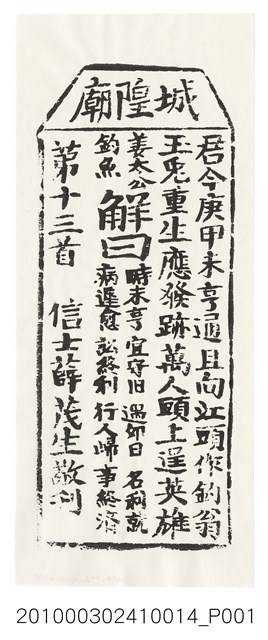 城隍廟
君今庚甲未亨通且向江頭作釣翁
玉兎重生應發跡萬人頭上逞英雄
姜太公釣魚
解曰
時未亨 宜守旧 遇卯日 名利就
病遲愈 訟終利 行人歸 事總濟
第十三首 信士薛茂生敬刊
201000302410014_P001